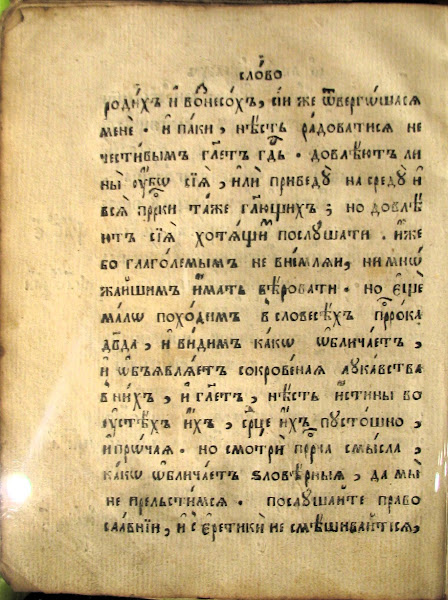 сло́во
роди́хъ и҆ возⷡ҇несо́хъ, сі́и же ѿверго́шасѧ
менѐ . и҆ па́ки, нѣ́сть ра́доватисѧ не
чести́вымъ гл҃етъ гдⷭ҇ь . довлѣ́ютъ ли
ны̀ ᲂу҆́бѡ сїѧ̀, и҆лѝ приведꙋ̀ на средꙋ̀ и҆
всѧ̀ прⷪ҇ро́ки та́же гл҃ющихъ ; но довлѣ́
ютъ сїѧ̀ хотѧ́щи́мъ послꙋ́шати . и҆́же
бо глаго́лемымъ не внима́ѧи, ни мнѡ́
жайшимъ и҆́мать вѣ́ровати . но є҆щѐ
ма́лѡ похо́димъ в словесѣ́хъ прⷪ҇ро́ка
дв҃да, и҆ ви́димъ ка́кѡ ѡ҆блича́етъ,
и҆ ѡ҆б̾ѧвлѧ́етъ сокрове́наѧ лꙋка́вства
в ни́хъ, и҆ гл҃етъ, нѣ́сть и҆́стины во
ᲂу҆стѣ́хъ и҆́хъ, ср҃це и҆́хъ пꙋсто́шно,
и҆ прѡ́чаѧ . но смотрѝ прⷪ҇ро́ка смы́сла,
ка́кѡ ѡ҆блича́етъ ѕловѣ́рныѧ, да мы̀
не прельсти́мсѧ . послꙋ́шайте право
сла́внїи, и҆ с є҆ретикѝ не смѣ́шивайтесѧ,